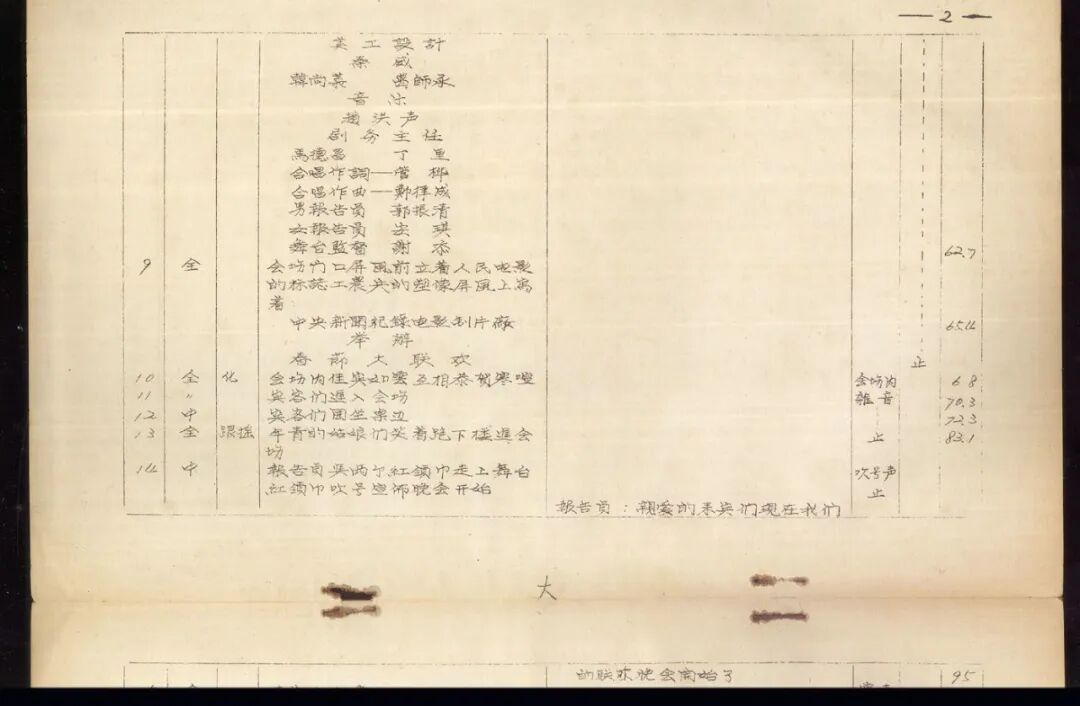 — 2 —
美工設計
秦威
韓尚義 馬師承
音乐
趙洪声
剧务主任
馬德昌 丁里
合唱作詞——管桦
合唱作曲——鄭律成
男報告員 郭振清
女報告員 安琪
舞台監督 謝添
62.7
9 全 会场门口屏風前立着人民电影
的标誌工農兵的塑像屏風上寫
着
中央新聞紀錄电影制片廠 65.14
举辦
春節大联欢 止
10 全 化 会场内佳宾如雲互相恭贺寒喧 会场内 68
11 〃 宾客们進入会场 雜音 70.3
12 中 宾客们围坐桌边 72.3
13 全 跟摇 年青的姑娘们笑着跑下楼進会 止 83.1
场
14 中 報告員與两个紅領巾走上舞台 吹号声
紅領巾吹号宣佈晚会开始 止
報告員：親愛的来宾们现在我们
大
的联欢晚会開始了 95